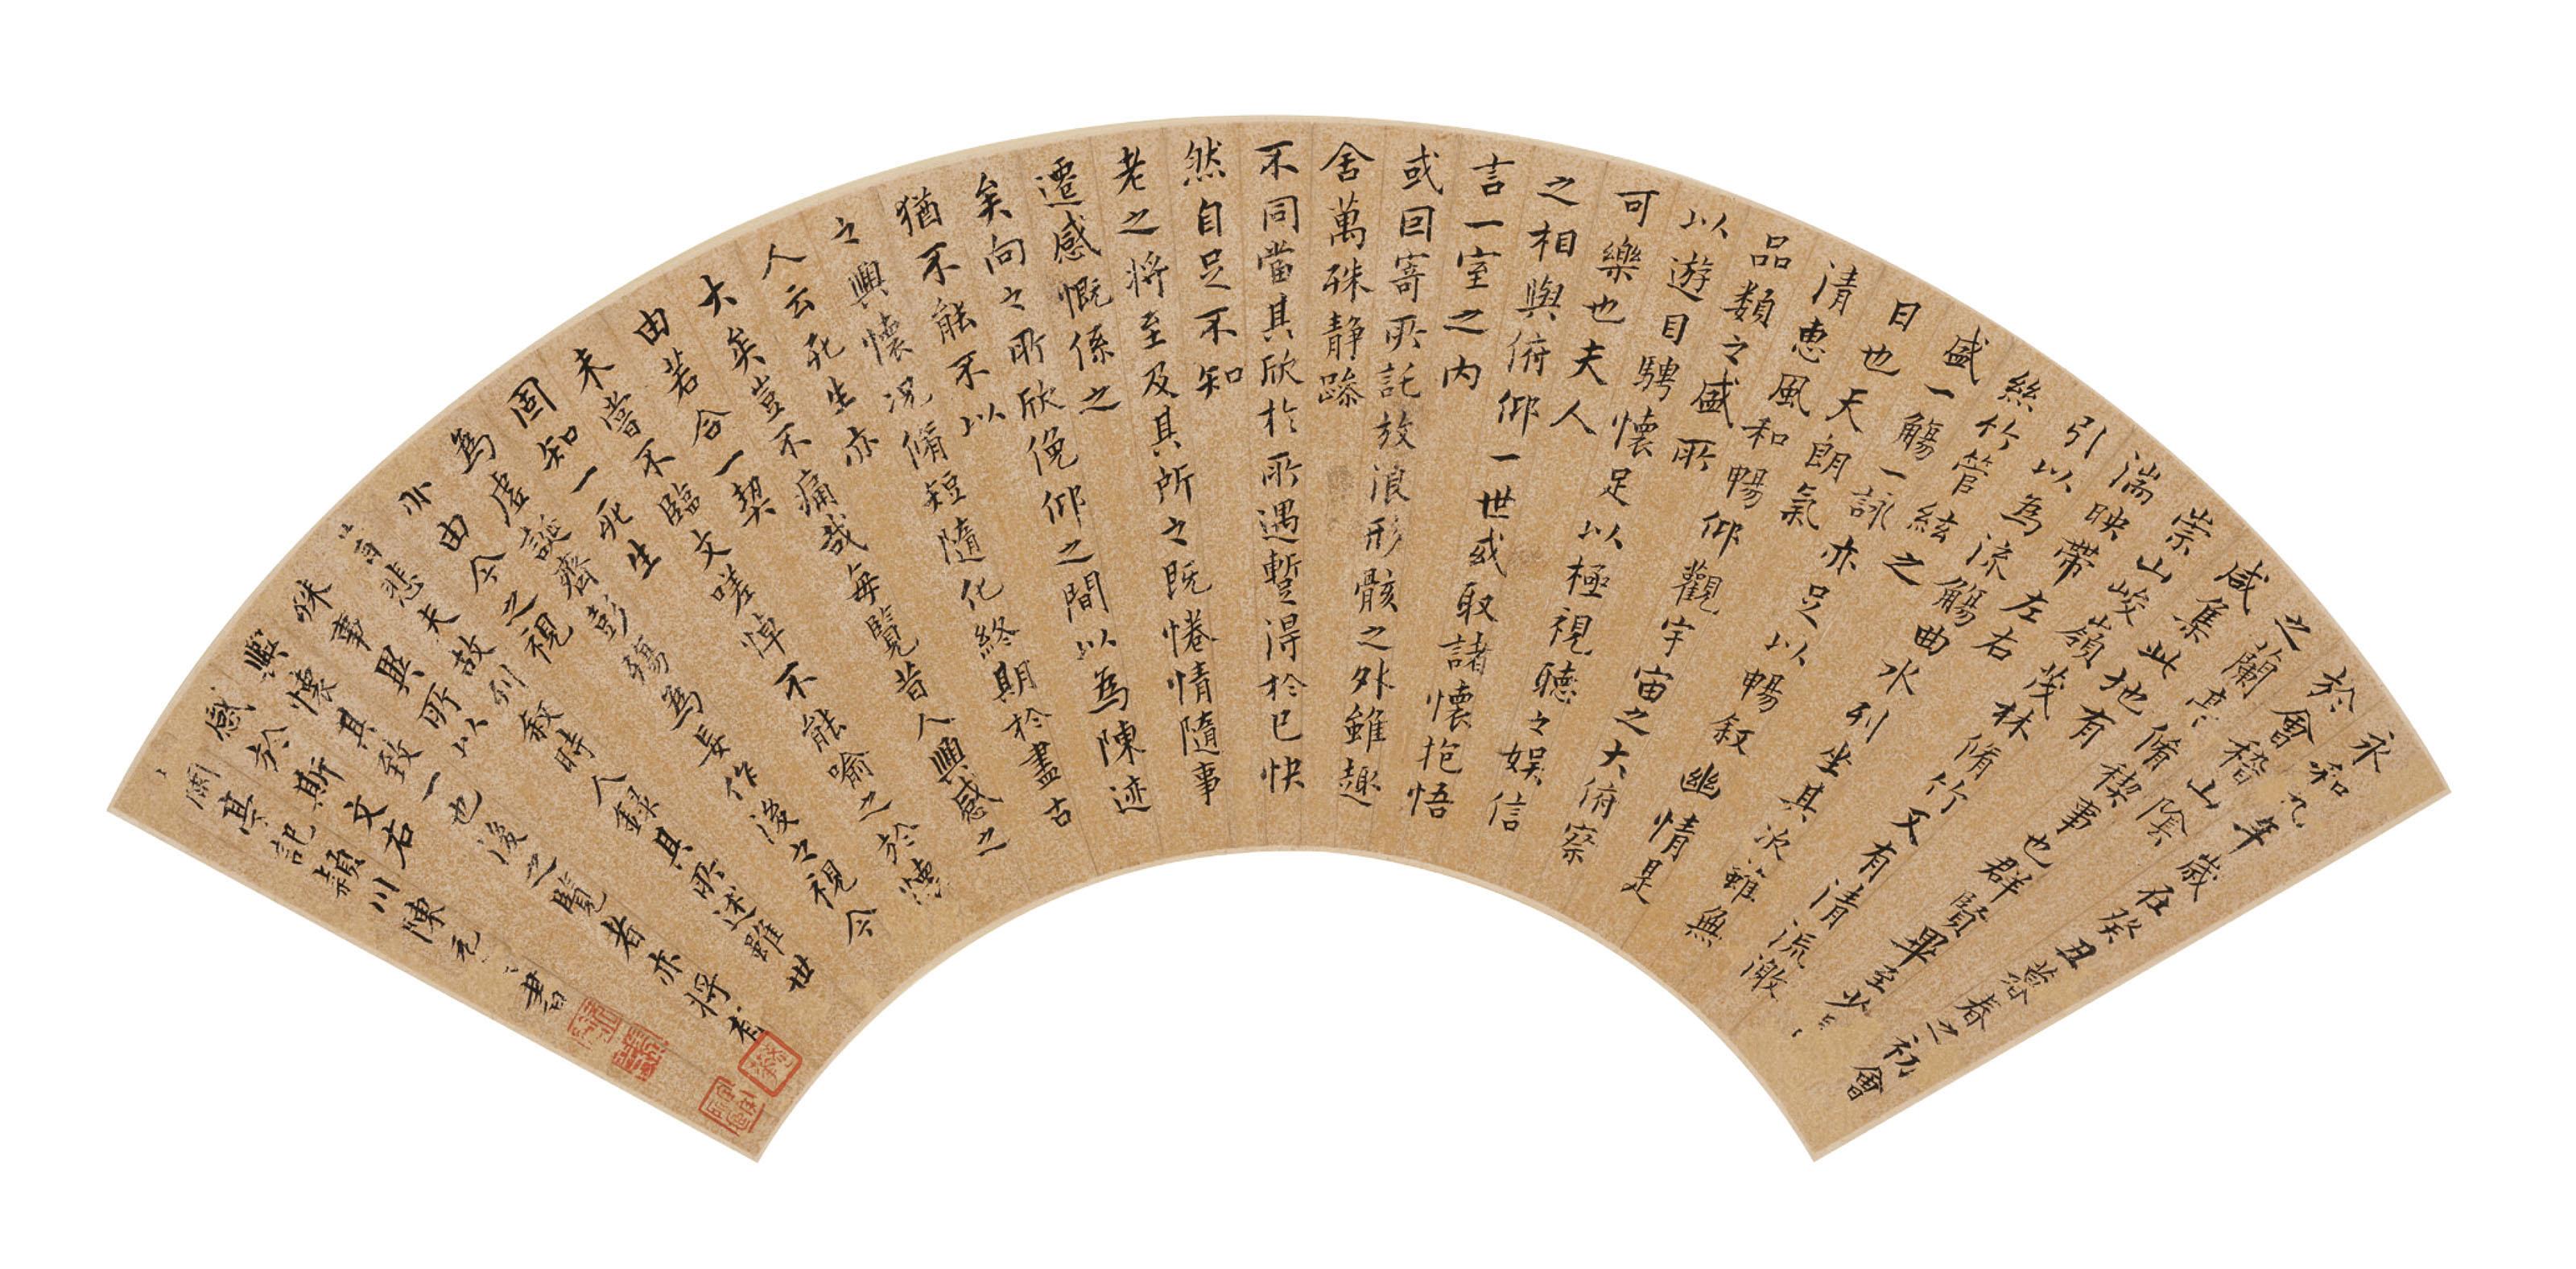 永和九年歲在癸丑暮春之初會
於會稽山陰
之蘭亭脩禊事也群賢畢至少
咸集此地有
崇山峻嶺茂林脩竹又有清流激
湍映帶左右
引以為流觴曲水列坐其次雖無
絲竹管絃之
盛一觴一詠亦足以暢叙幽情是
日也天朗氣
清惠風和暢仰觀宇宙之大俯察
品類之盛所
以遊目騁懷足以極視聽之娛信
可樂也夫人
之相與俯仰一世或取諸懷抱悟
言一室之内
或因寄所託放浪形骸之外雖趣
舍萬殊靜躁
不同當其欣於所遇暫得於己快
然自足不知
老之將至及其所之既惓情隨事
遷感慨係之
矣向之所欣俛仰之間以為陳迹
猶不能不以
之興懷況脩短隨化終期於盡古
人云死生亦
大矣豈不痛哉每覽昔人興感之
由若合一契
未嘗不臨文嗟悼不能喻之於懷
固知一死生
為虛誕齊彭殤為妄作後之視今
亦由今之視
昔悲夫故列叙時人録其所述雖世
殊事異所以
興懷其致一也後之覽者亦將有
感於斯文右
記潁川陳元書